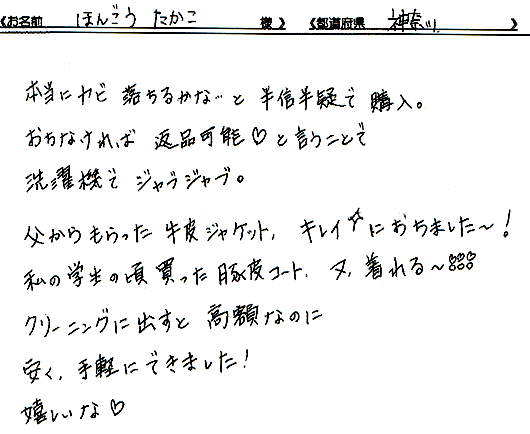 《お名前 ほんごう たかこ 様》 《都道府県 神奈川 》
本当にカビ落ちるかな…と半信半疑で購入。
おちなければ返品可能♡と言うことで
洗濯機でジャブジャブ。
父からもらった牛皮ジャケット、キレイ☆におちました〜!
私の学生の頃買った豚皮コート、又、着れる〜
クリーニングに出すと高額なのに
安く、手軽にできました!
嬉しいな♡